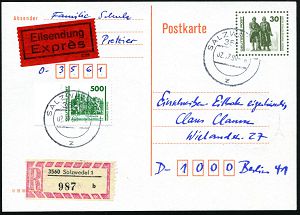 Absender
Familie Schulz
Eilsendung
Exprès
Pretzier
O-3561
Postkarte
30
SALZWEDEL
500
SALZWEDEL
z
z
3560 Salzwedel 1
R
987 b
Claus Clausen
Wielandstr. 27
D-1000 Berlin 41